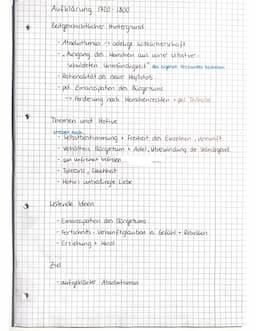 Aufklärung 1720 - 1800
Zeitgeschichtlicher Hintergrund
- Absolutismus → adelige Willkürherrschaft
- „Ausgang des Menschen aus seiner selbstver-
schuldeten Unmündigkeit" des eigenen Verstandes bedienen
- Rationalität als neuer Maßstab
- pol. Emanzipation des Bürgertums
→ Forderung nach Menschenrechten + pol. Teilhabe
Themen und Motive
streben nach
- Selbstbestimmung + Freiheit des Einzelnen, Vernunft
- Verhältnis Bürgertum + Adel, Überwindung der Ständegesell.
- von Unfreiheit befreien
- Toleranz, Gleichheit
- Motiv: unbedingte Liebe
Leitende Ideen
- Emanzipation des Bürgertums
- Fortschritts-, Vernunftglauben vs. Gefühl + Rebellion
- Erziehung + Moral
Ziel
- aufgeklärter Absolutismus